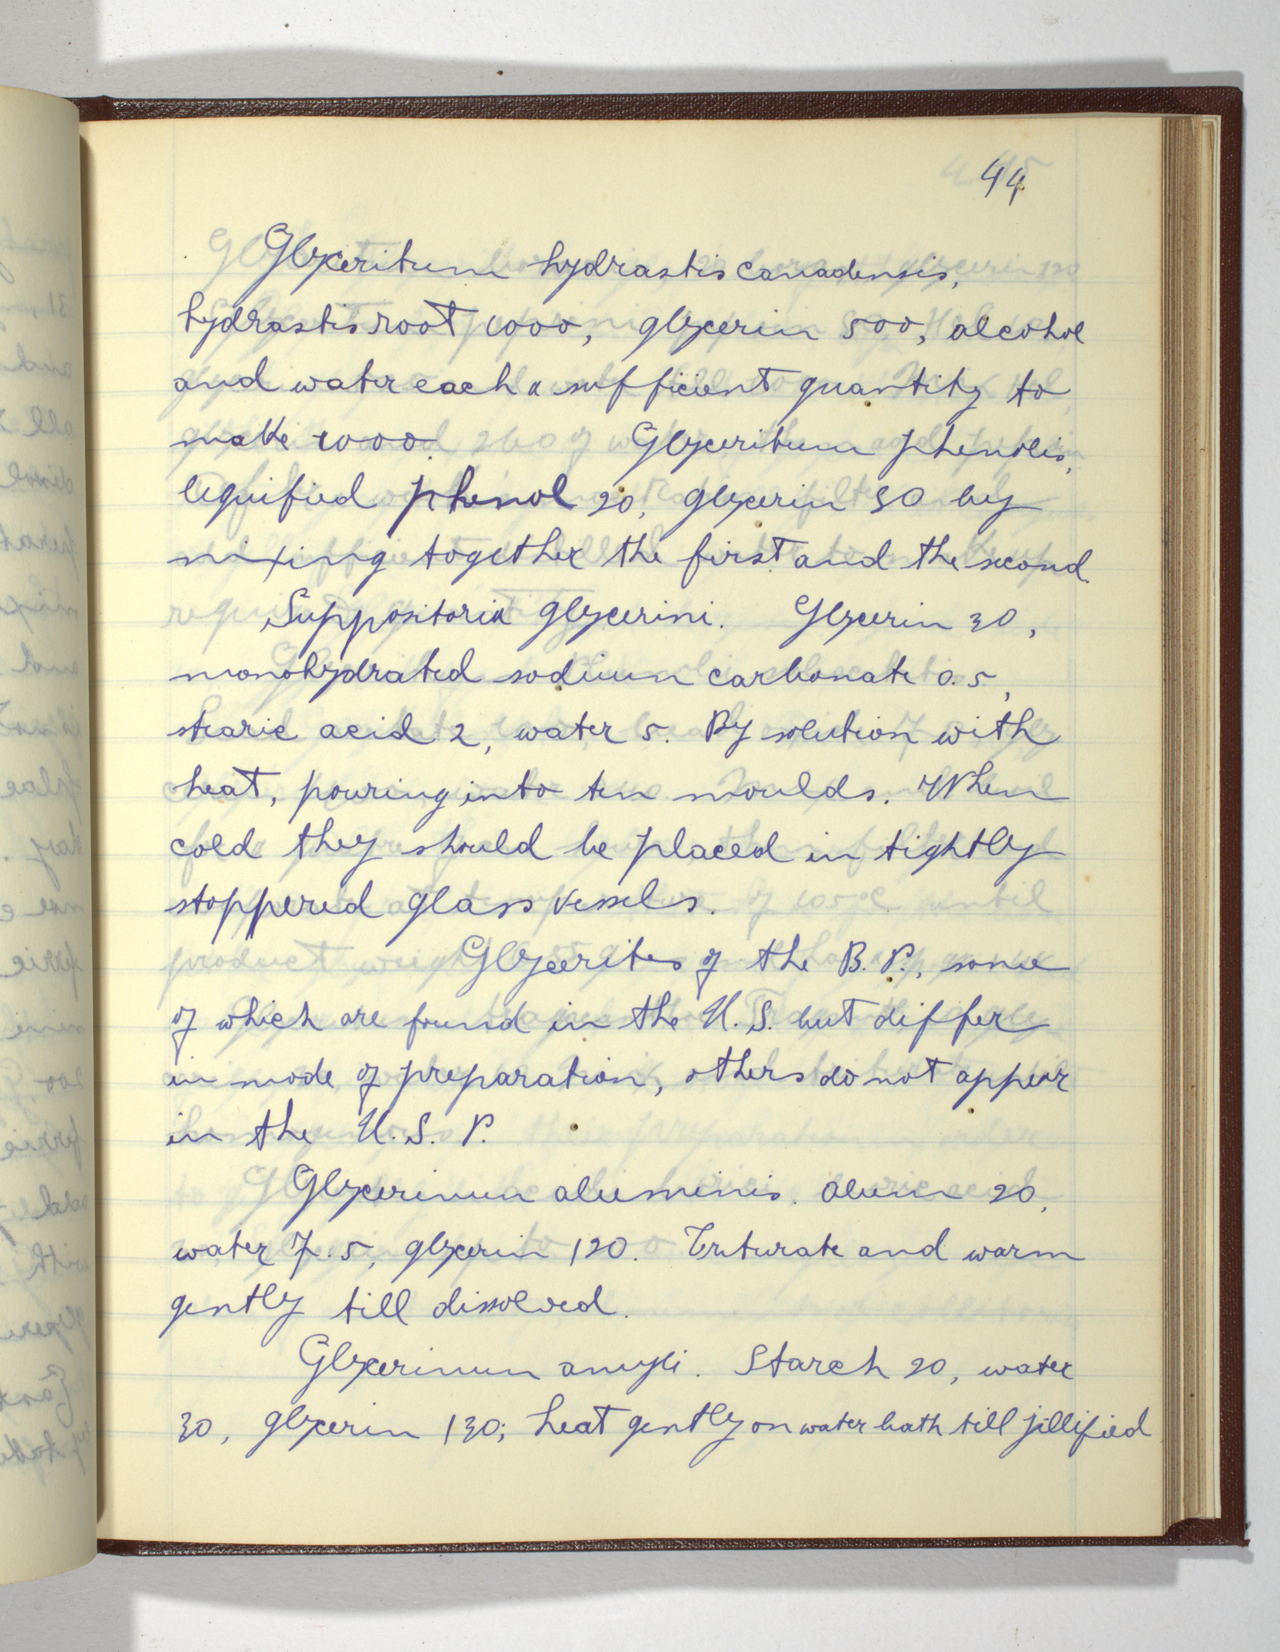 44
Glyceritum hydrastis canadensis,
hydrastis root 1000, glycerin 500, alcohol
and water each a sufficient quantity to
make 1000. Glyceritum phenolis,
liquified phenol 20, glycerin 80 by
mixing together the first and the second.
Suppositoria glycerini. Glycerin 30,
monohydrated sodium carbonate 0.5,
stearic acid 2, water 5. By solution with
heat, pouring into ten moulds. When
cold they should be placed in tightly
stoppered glass vessels.
Glycerites of the B. P., some
of which are found in the U. S. but differ
in mode of preparation, others do not appear
in the U. S. P.
Glycerinum aluminis. Alum 20,
water 7.5, glycerin 120. Triturate and warm
gently till dissolved.
Glycerinum amyli. Starch 20, water
30, glycerin 130; heat gently on water bath till jellified